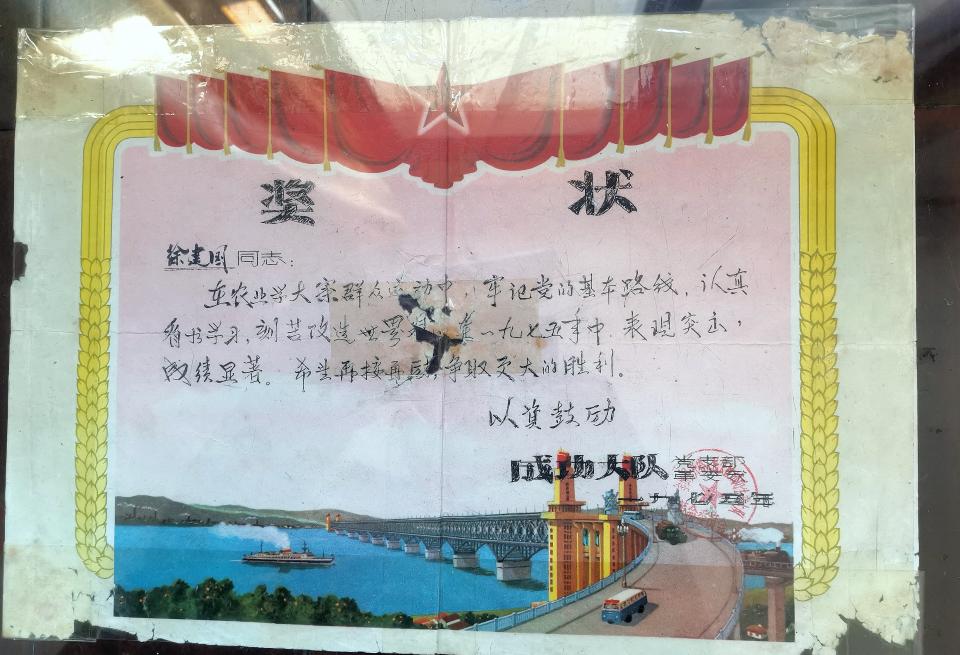 奖状
徐建国同志：
在农业学大寨群众运动中，牢记党的基本路线，认真
看书学习，刻苦改造世界观，在一九七五年中，表现突出，
成绩显著。希望再接再励，争取更大的胜利。
以资鼓励
成功大队 党支部 革委会
一九七五年